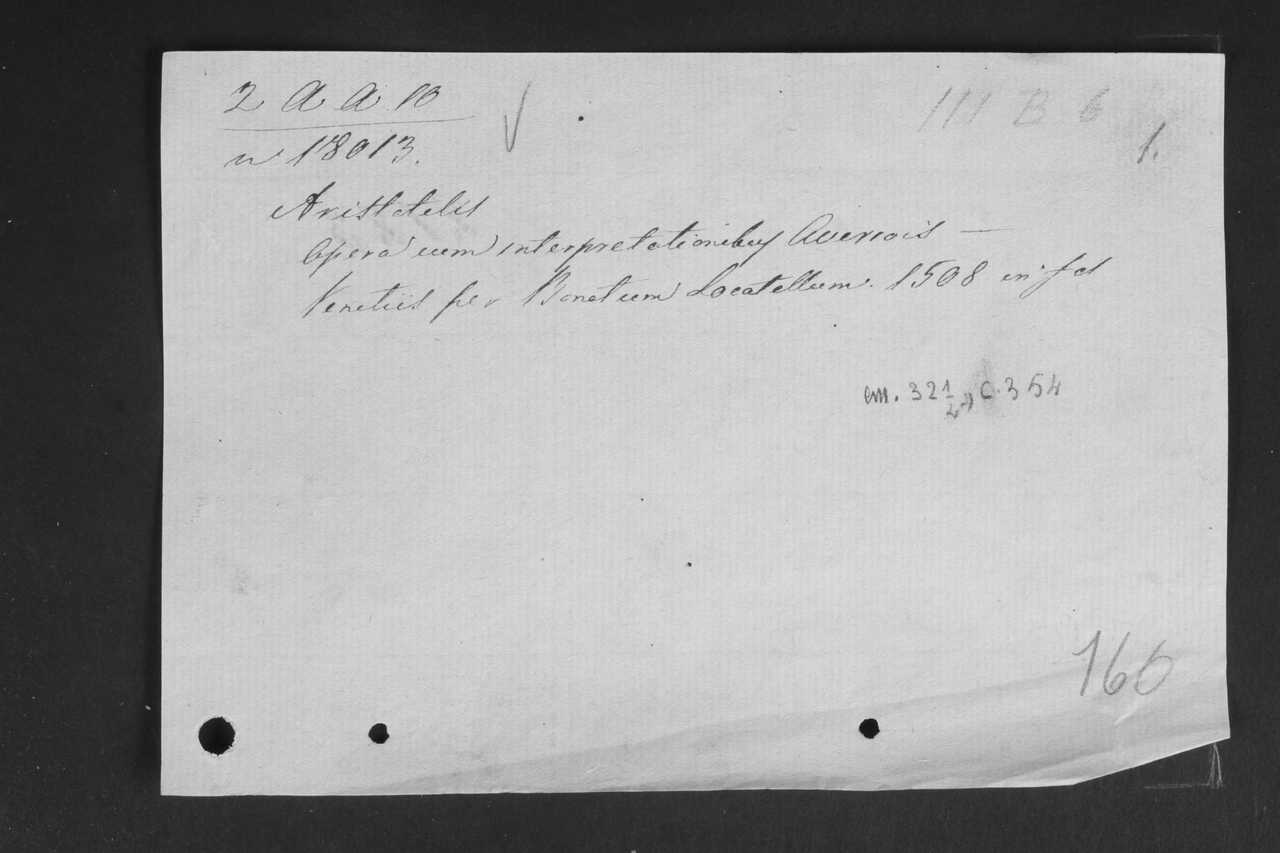 2 A A 10
III B 6
n 18013.
1.
Aristotelis
Opera cum interpretationibus Averrois —
Venetiis per Bonetum Locatellum. 1508 in fol
cm. 32 1/2, c. 354
166